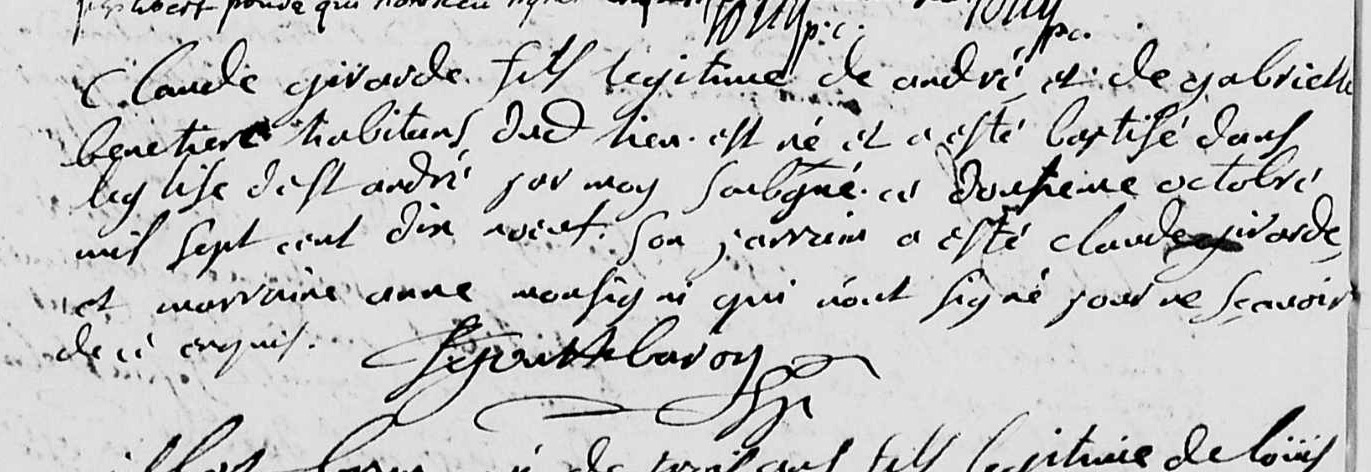 pour qui
p.c.
pc.
Claude girarde fils legitime de andré et de gabrielle
benetiere habitans dud lieu est né et a esté baptisé dans
leglise de st andré par moy soubgné ce douzieme octobre
mil sept cent dix neuf son parrain a esté claude girarde
et marraine anne monsigni qui n'ont signé pour ne sçavoir
de ce enquis.
fils legitime de loüis